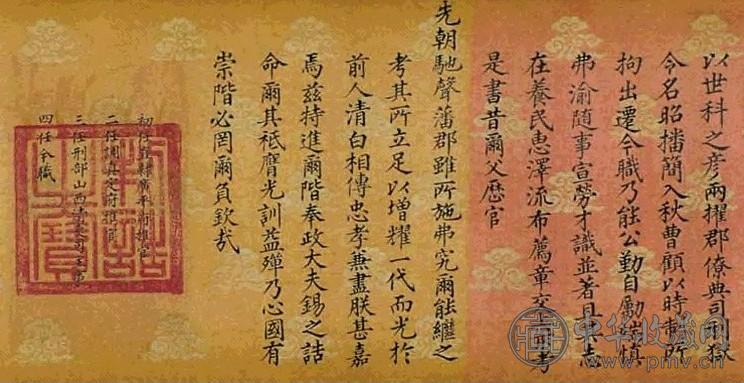 以世科之彥兩擢郡僚典司刑獄
令名昭播簡入秋曹顧以時事所
拘出遷今職乃能公勤自勵端慎
弗渝隨事宣勞才識並著且其志
在養民惠澤流布薦章交上可考
是書昔爾父歷官
先朝馳聲藩郡雖所施弗究爾能繼之
考其所立足以增耀一代而光於
前人清白相傳忠孝兼盡朕甚嘉
焉茲特進爾階奉政大夫錫之誥
命爾其祗膺光訓益殫乃心國有
崇階必罔爾負欽哉
初任直隸廣平府推官
二任調真定府推官
三任刑部山西清吏司主事
四任今職
制誥之寶
中华收藏网
www.pmv.cn